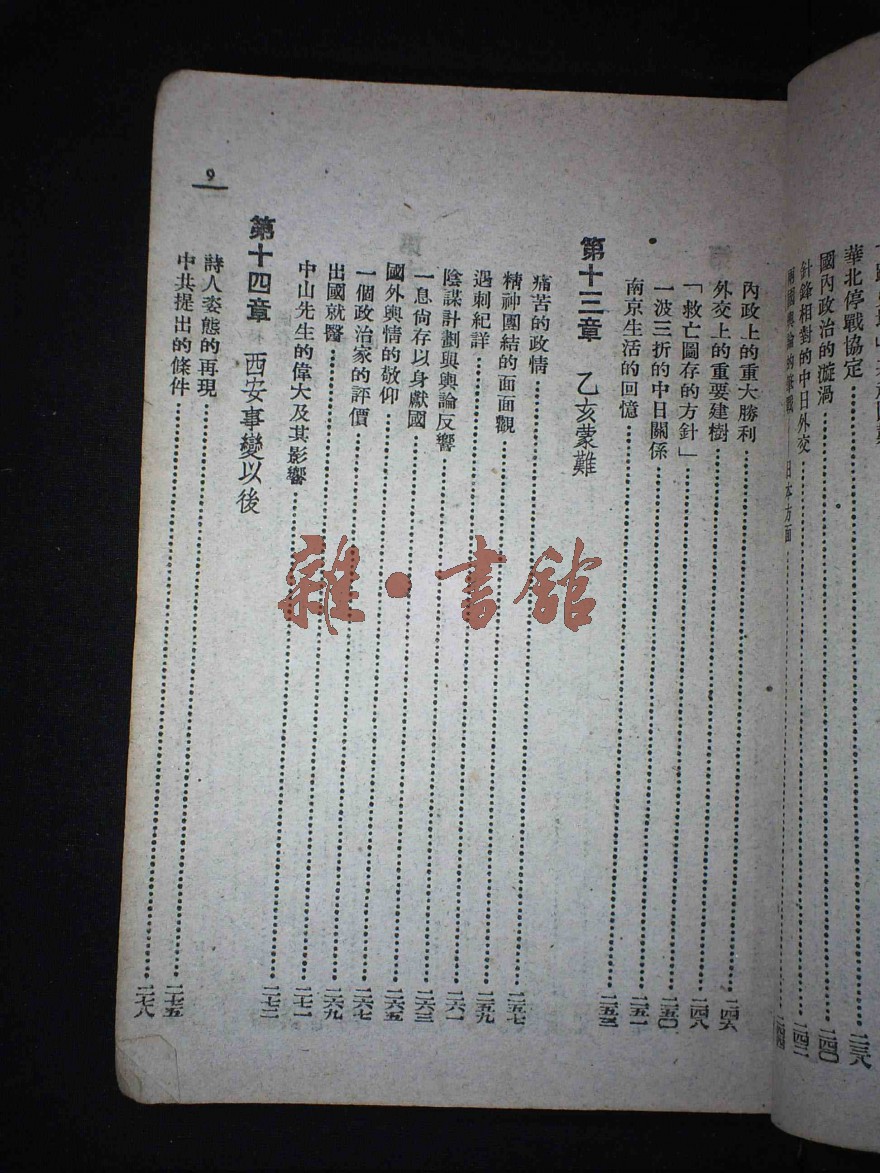 華北停戰協定……二三八
國內政治的漩渦……二四〇
針鋒相對的中日外交……二四二
兩國輿論的 戰——日本方面……二四四
內政上的重大勝利……二四六
外交上的重要建樹……二四八
「救亡圖存的方針」……二五〇
一波三折的中日關係……二五一
南京生活的回憶……二五三
第十三章 乙亥蒙難
痛苦的政情……二五七
精神團結的面面觀……二五九
遇刺紀詳……二六一
陰謀計劃與輿論反響……二六三
一息尙存以身獻國……二六五
國外輿情的敬仰……二六七
一個政治家的評價……二六九
出國就醫……二七一
中山先生的偉大及其影響……二七二
第十四章 西安事變以後
詩人姿態的再現……二七五
中共提出的條件……二七八
9
雜·書舘